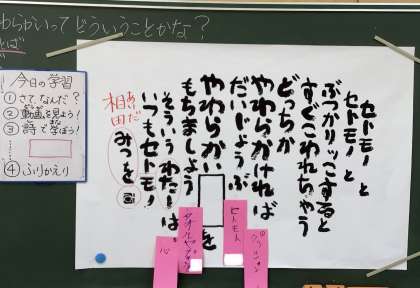 わらかいってどういうことかな？
とば
今日の学習
①さて、なんだ？
②動画を見よう！
③詩で学ぼう！
④ふりかえり
セトモノと
セトモノと
ぶつかりッこすると
すぐこわれちゃう
どっちか
やわらかければ
だいじょうぶ
やわらかい
を
もちましょう
そういうわたしは
いつもセトモノ
あいだ
相田
みつを
クッション
セトモト
心